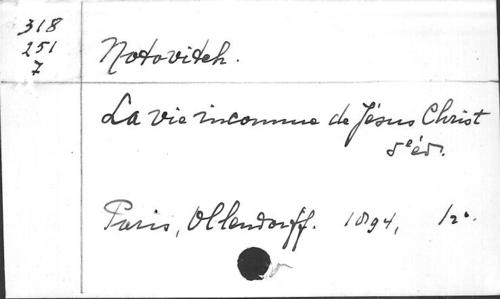 318
251
7
Notovitch.
La vie inconnue de Jésus Christ
5e éd.
Paris, Ollendorff. 1894, 12°.